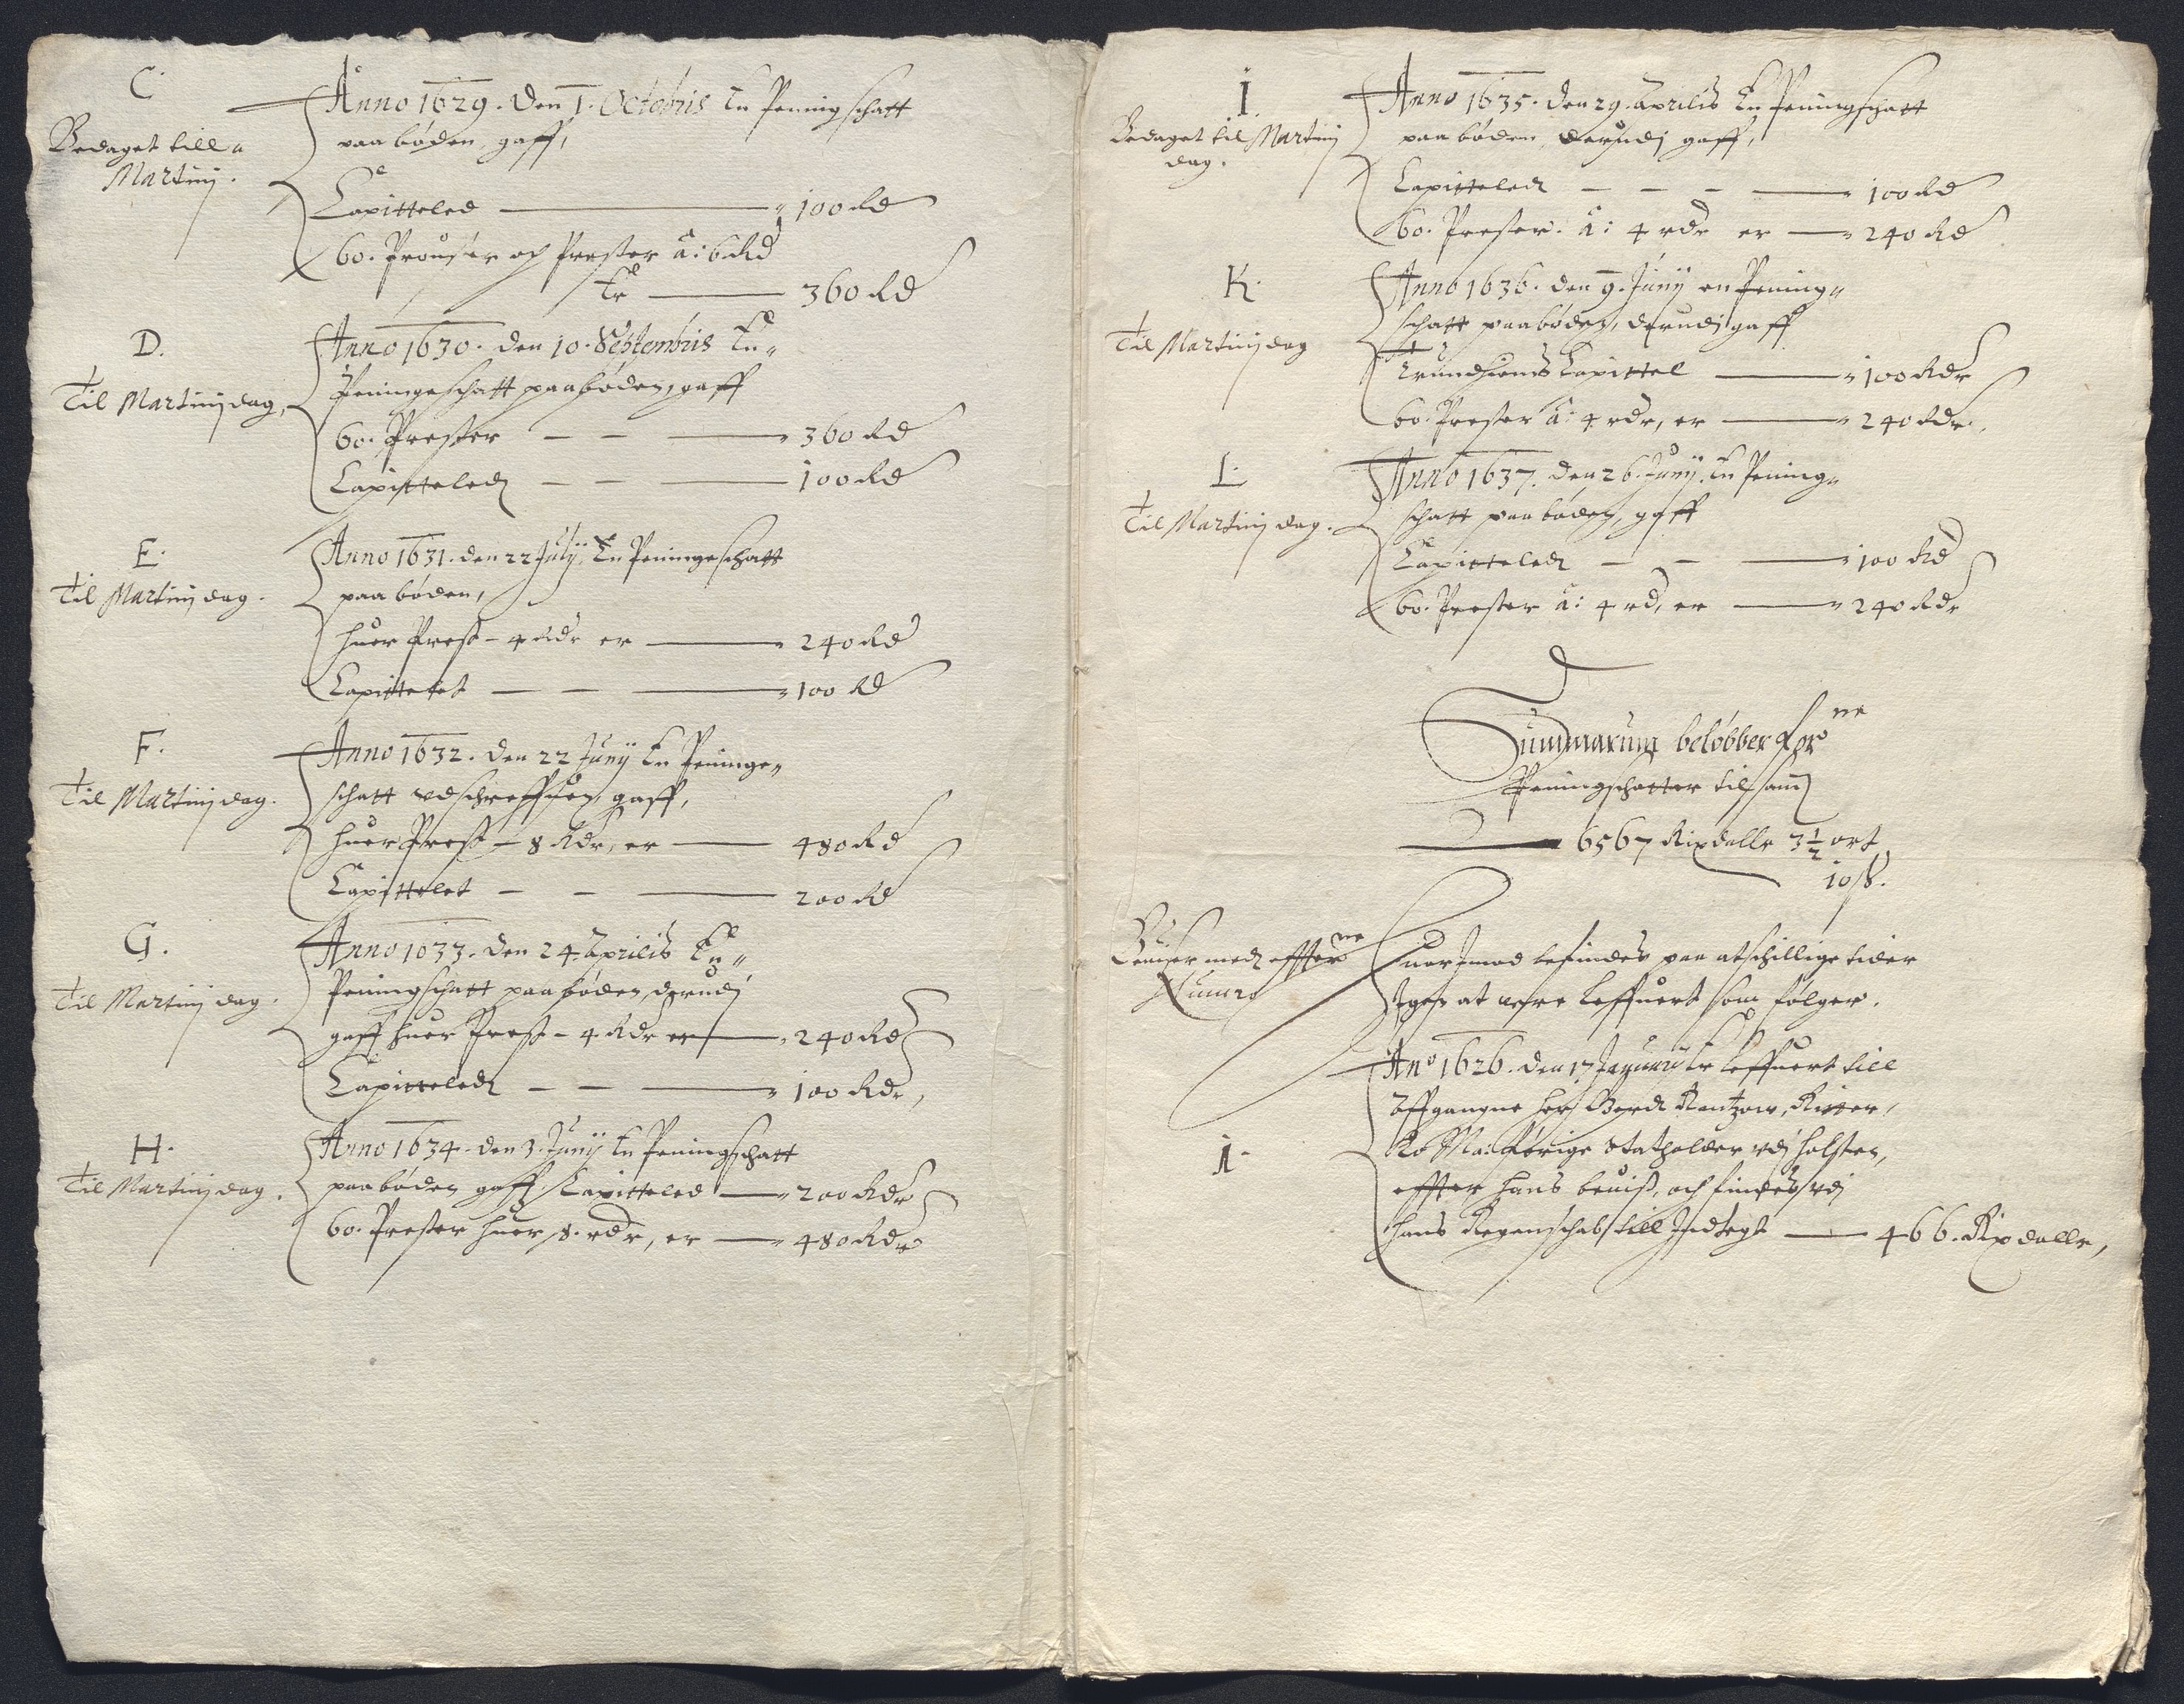 C.
Bedaget till
Martinj.
Anno 1629. Den 1. Octobris En Pening schatt
paabøden, gaff,
Capitteled 100 Rd
60. Prouster och Prester a: 6 Rd
Er 360 Rd
D.
Til Martinj dag,
Anno 1630. den 10. Septembris En
Peningeschatt paabøden, gaff
60. Prester 360 Rd
Capitteled 100 Rd
E.
Til Martinj dag.
Anno 1631. den 22 Julij, En Peningeschatt
paabøden,
huer Prest - 4 Rdr er 240 Rd
Capittelet 100 Rd
F.
Til Martinj dag.
Anno 1632. den 22 Junij En Peninge
schatt udschreffuen, gaff,
huer Prest - 8 Rdr, er 480 Rd
Capittelet 200 Rd
G.
Til Martinj dag.
Anno 1633. den 24 Aprilis En
Peningschatt paabøden, derudj
gaff huer Prest - 4 Rdr er 240 Rd
Capitteled 100 Rdr,
H.
Til Martinj dag.
Anno 1634. den 3. Junij En Peningschatt
paabøden gaff Capitteled 200 Rdr
60. Prester huer 8. rdr, er 480 Rdr
I.
Bedaget til Martinj
dag.
Anno 1635. den 29. Aprilis En Peningschatt
paabøden, derudj gaff,
Capitteled 100 Rd
60. Prester. a: 4 rdr er 240 Rd
K.
Til Martinj dag
Anno 1636. den 9. Junij en Pening
schatt paabøden, derudj gaff
Trundhiems Capittel 100 Rdr
60. Prester a: 4 rdr, er 240 Rdr.
L.
Til Martinj dag.
Anno 1637. den 26. Junij. En Pening
schatt paabøden, gaff
Capitteled 100 Rd
60. Prester a: 4 rd, er 240 Rdr
Summarum beløbber for ne
Peningschatter tilsam
6567 Rixdallr 3 1/2 ort
10 ß.
Beuiser med effter ne
Numro
Huor Imod befindes paa atschillige tider
Igen at were leffuert som følger.
Ano 1626. den 17 Januarij Er leffuert till
Affgangne Her Gerdt Rantzow, Ritter,
Ko: Ma: Forige Statholder udj Holsten,
effter hans beuiß, och findes udj
hans Regenschab till Indtegt 466. Rixdallr,
1.